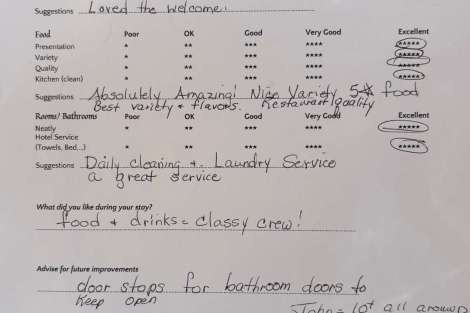 Suggestions Loved the welcome!
Food Poor OK Good Very Good Excellent
Presentation * ** *** **** *****
Variety * ** *** **** *****
Quality * ** *** **** *****
Kitchen (clean) * ** *** **** *****
Suggestions Absolutely Amazing! Nice Variety 5* food
Best variety + flavors. Restaurant quality
Rooms/ Bathrooms Poor OK Good Very Good Excellent
Neatly * ** *** **** *****
Hotel Service
(Towels, Bed...) * ** *** **** *****
Suggestions Daily cleaning + Laundry Service
a great service
What did you like during your stay?
food + drinks = classy crew!
Advise for future improvements
door stops for bathroom doors to
keep open
John = lot all around